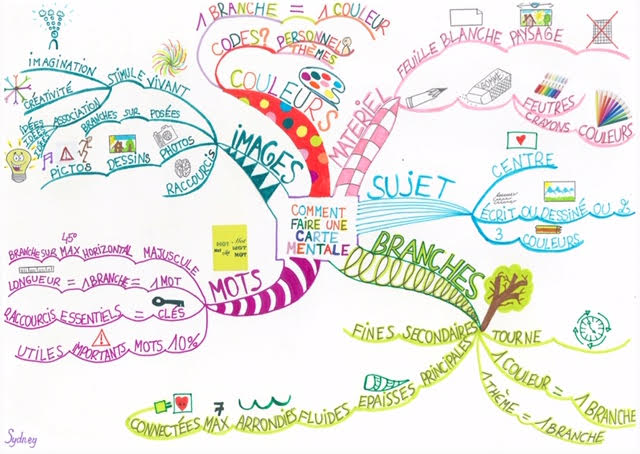 COMMENT
FAIRE UNE
CARTE
MENTALE
MATÉRIEL
FEUILLE BLANCHE PAYSAGE
GOMME
FEUTRES
CRAYONS
COULEURS
SUJET
CENTRE
ÉCRIT OU DESSINÉ OU &
3 COULEURS
BRANCHES
TOURNE
1 COULEUR = 1 BRANCHE
1 THÈME = 1 BRANCHE
FINES SECONDAIRES
CONNECTÉES MAX ARRONDIES FLUIDES EPAISSES PRINCIPALES
7
MOTS
MOT Mot
MOT MOT
MOT
45°
BRANCHE SUR MAX HORIZONTAL MAJUSCULE
LONGUEUR = 1 BRANCHE = 1 MOT
RACCOURCIS ESSENTIELS = CLÉS
UTILES IMPORTANTS MOTS 10%
IMAGES
IMAGINATION
CRÉATIVITÉ
STIMULE VIVANT
IDÉES
IDÉES
IDÉES
ASSOCIATION
BRANCHES SUR POSÉES
PICTOS DESSINS PHOTOS
RACCOURCIS
COULEURS
1 BRANCHE = 1 COULEUR
CODES? PERSONNEL
THÈMES
Sydney